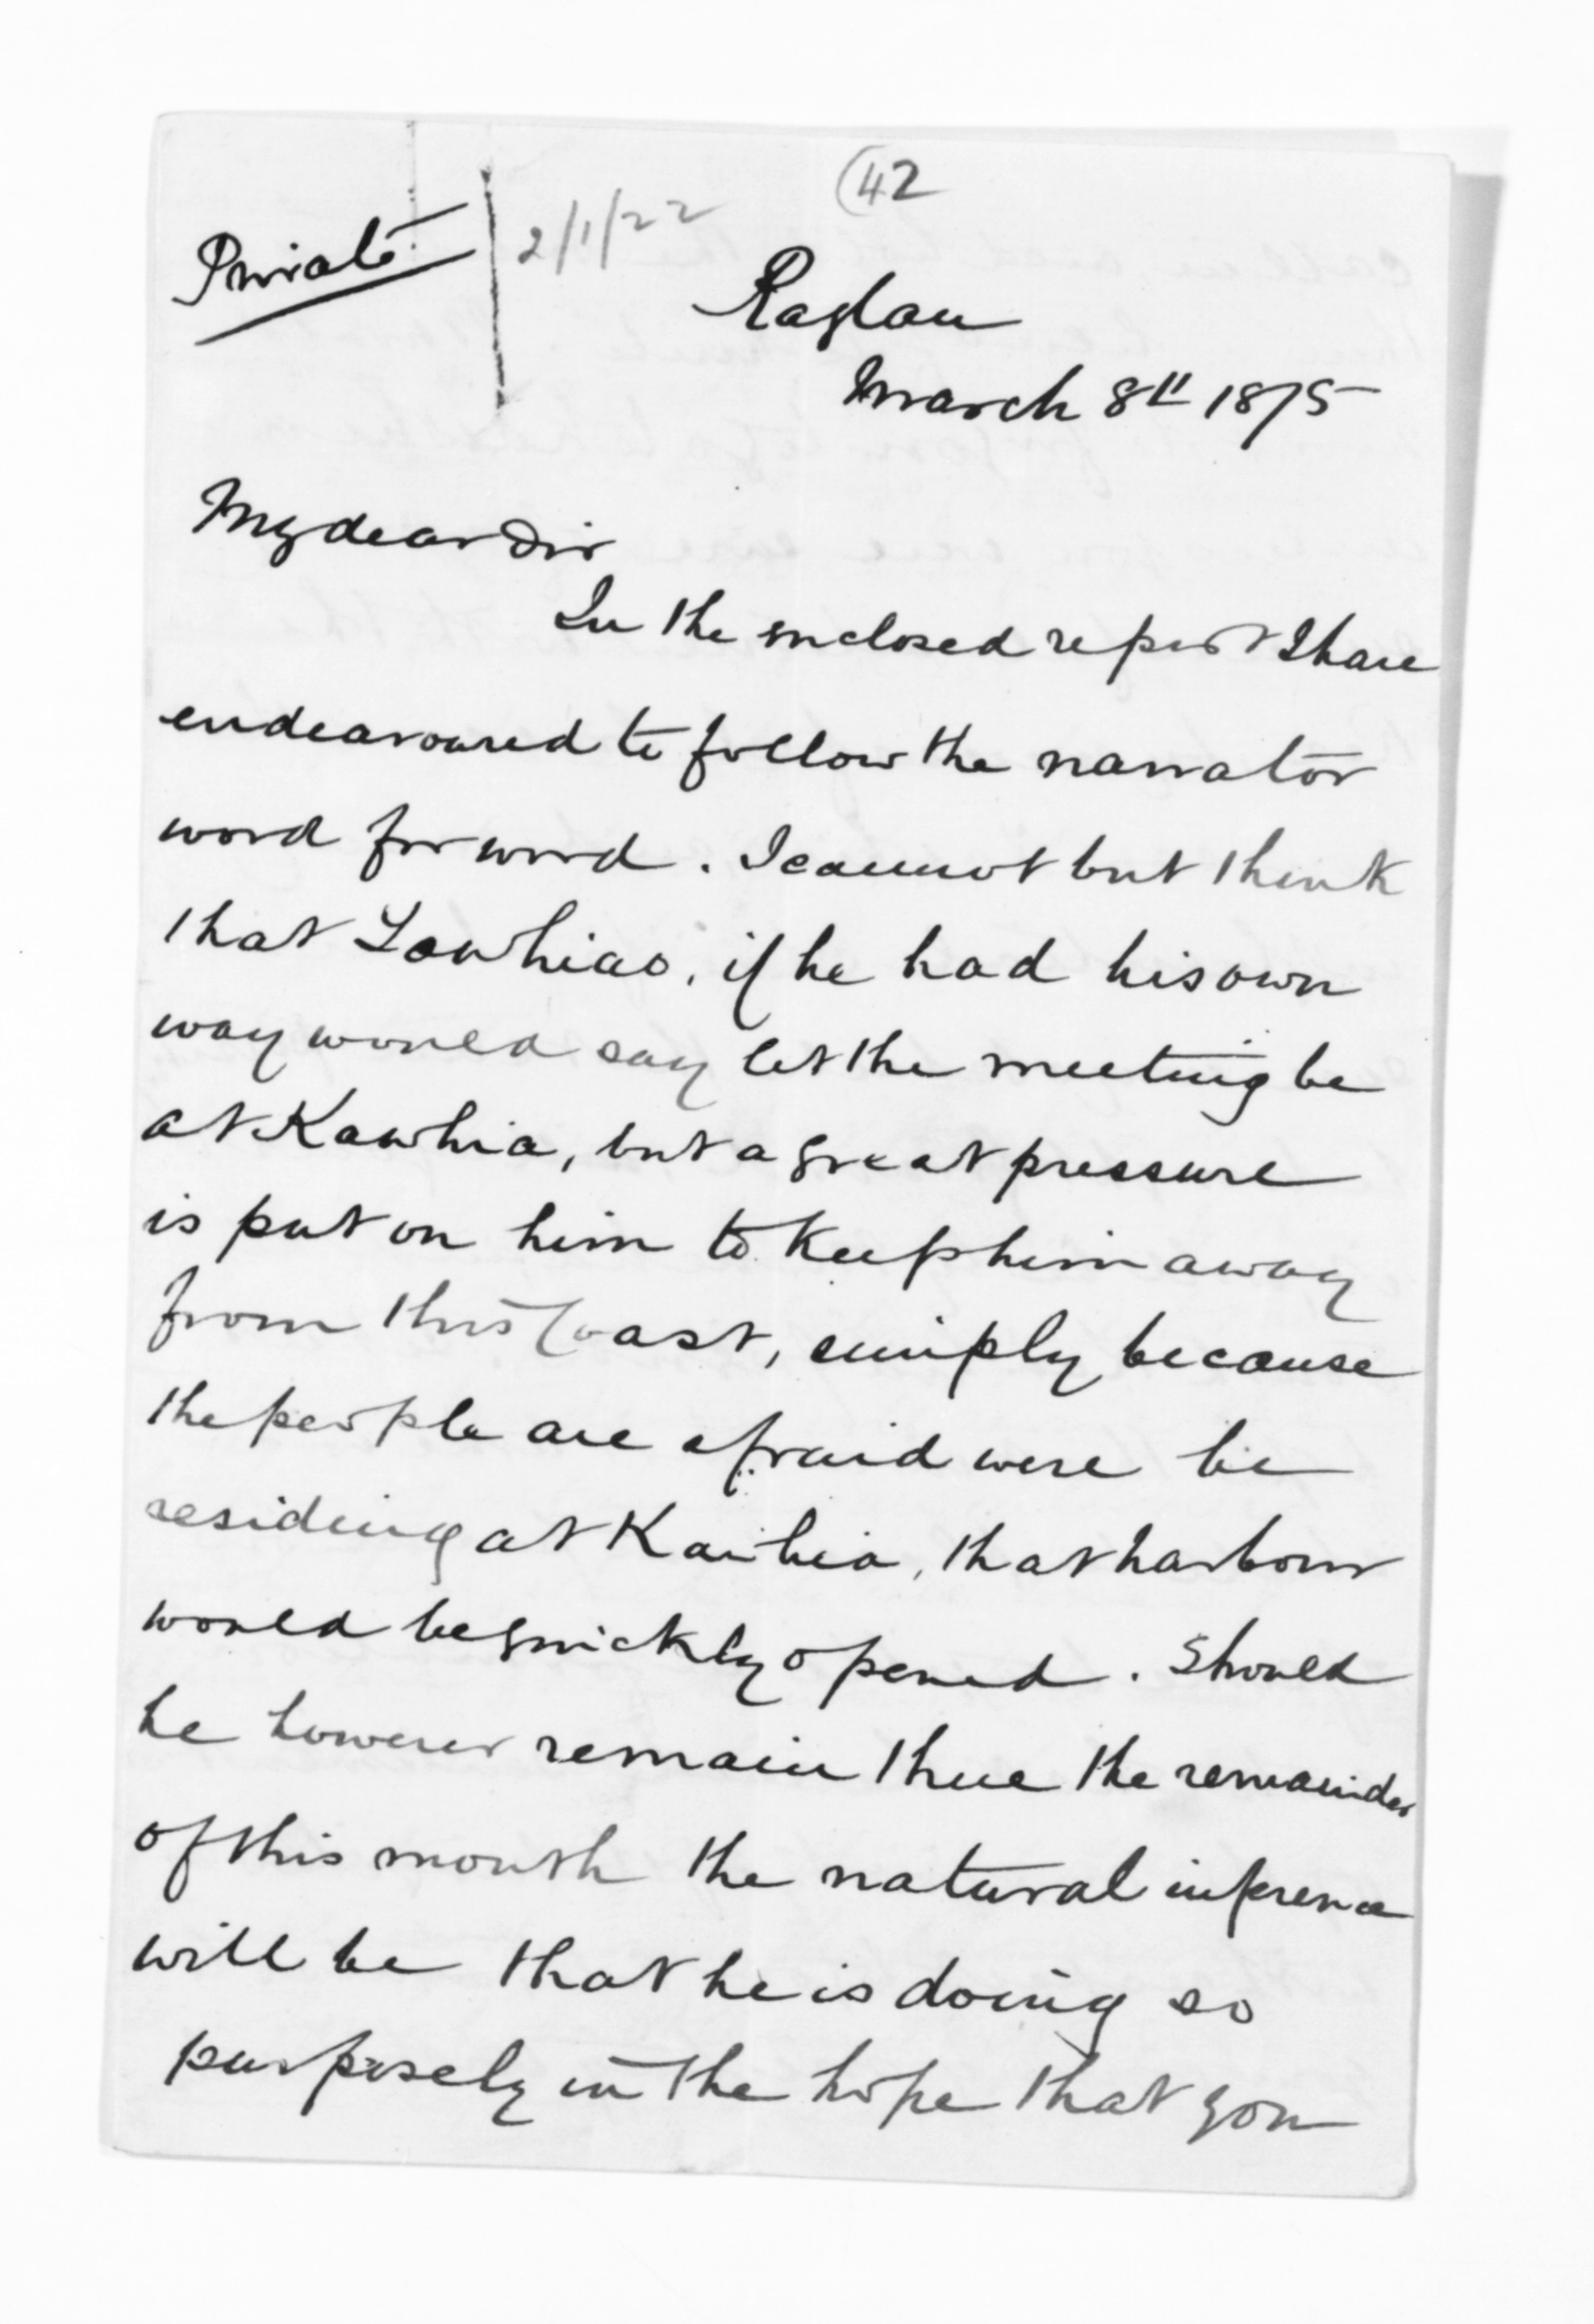 42
Private
2/1/22
Raglan
March 8th 1875
My dear Sir
In the enclosed report I have
endeavoured to follow the narrator
word for word. I cannot but think
that Tawhiao, if he had his own
way would say let the meeting be
at Kawhia, but a great pressure
is put on him to keep him away
from this Coast, simply because
the people are afraid were he
residing at Kawhia, that harbour
would be quickly opened. Should
he however remain there the remainder
of this month the natural inference
will be that he is doing so
purposely in the hope that you